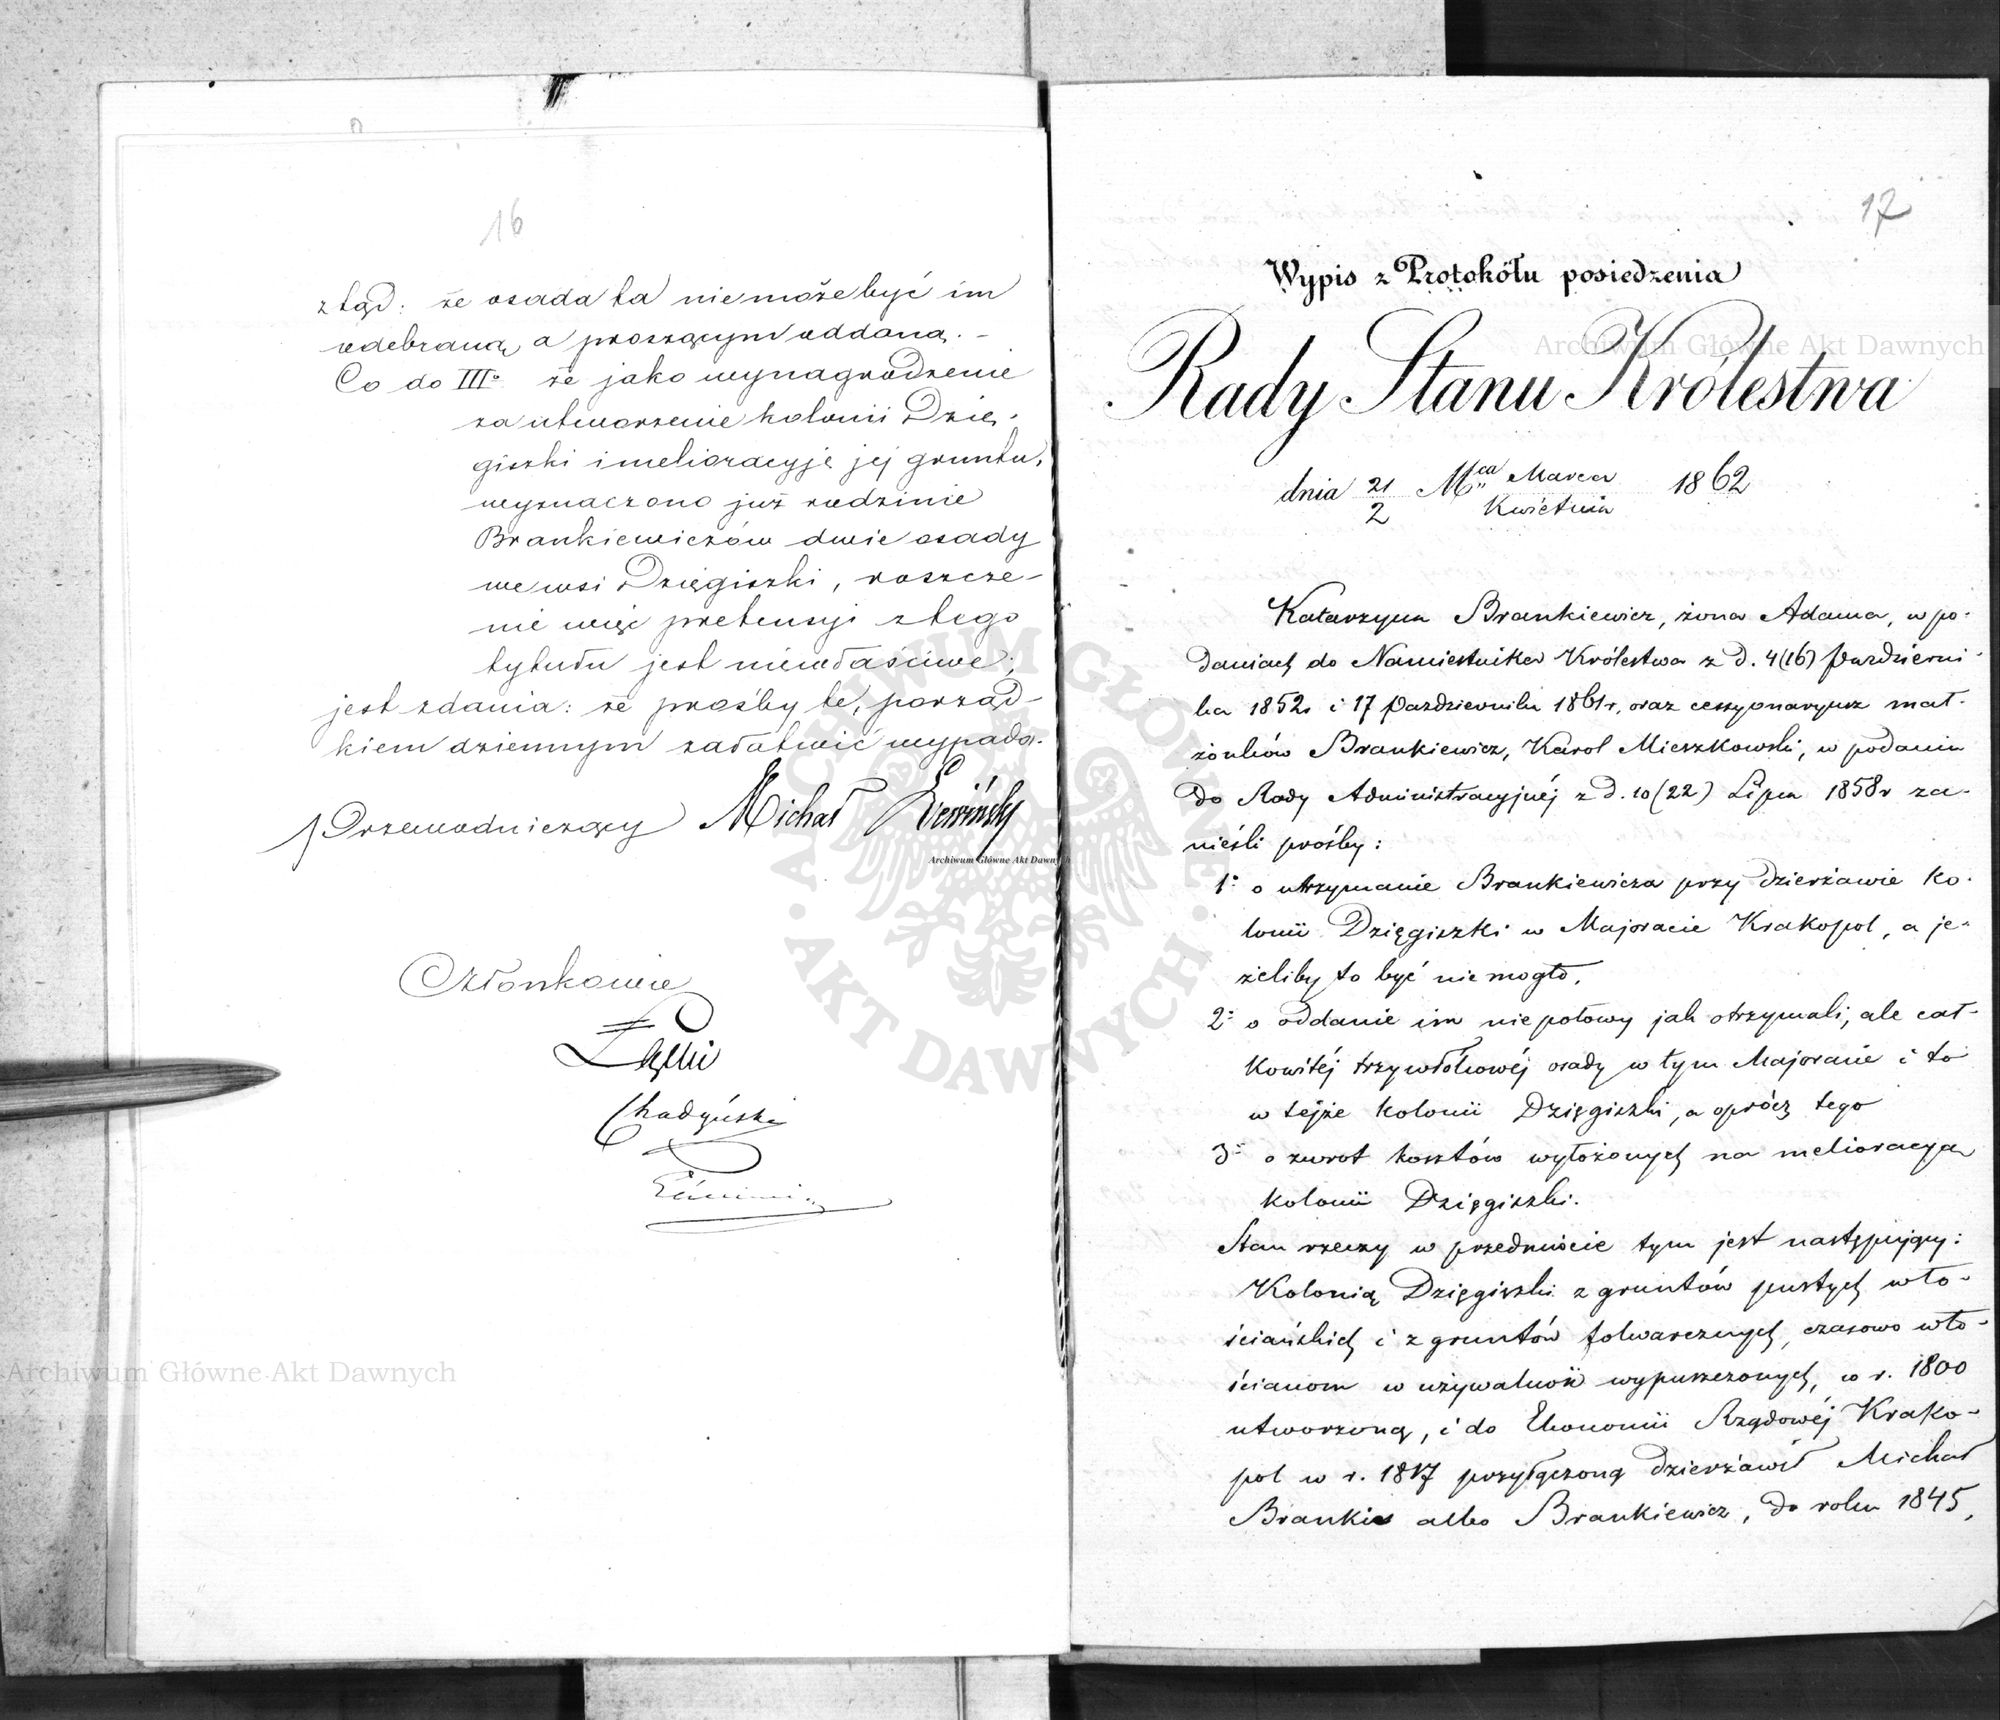 16
ztąd: że osada ta nie może być im
odebraną a proszącym oddaną. –
Co do III° że jako wynagrodzenie
za utworzenie kolonii Dzię-
giszki i melioracyję jej gruntu,
wyznaczono już rodzinie
Brankiewiczów dwie osady
we wsi Dzięgiszki, roszcze-
nie więc pretensyi z tego
tytułu jest niewłaściwe;
jest zdania: że prośby te, porząd-
kiem dziennym załatwić wypada.
Przewodniczący Michał
Członkowie
Łęski
Chądzyński
17
Wypis z Protokółu posiedzenia
Rady Stanu Królestwa
dnia 21/2 Mca Marca/Kwietnia 1862
Katarzyna Brankiewicz, żona Adama, w po-
daniach do Namiestnika Królestwa z d. 4 (16) Październi-
ka 1852 r i 17 Października 1861 r, oraz cessyonaryusz mał-
żonków Brankiewicz, Karol Mieszkowski, w podaniu
do Rady Administracyjnéj z d. 10 (22) Lipca 1858 r za-
nieśli prośby:
1° o utrzymanie Brankiewicza przy dzierżawie ko-
lonii Dzięgiszki w Majoracie Krakopol, a je-
żeliby to być nie mogło,
2° o oddanie im nie połowy jak otrzymali, ale cał-
kowitéj trzywłókowéj osady w tym Majoracie i to
w tejże kolonii Dzięgiszki, a oprócz tego
3° o zwrot kosztów wyłożonych na melioracya
kolonii Dzięgiszki.
Stan rzeczy w przedmiocie tym jest następujący:
Kolonią Dzięgiszki z gruntów pustych wło-
ściańskich i z gruntów folwarcznych, czasowo wło-
ścianom w używalność wypuszczonych, w r. 1800
utworzoną, i do Ekonomii Rządowéj Krako-
pol w r. 1817 przyłączoną dzierżawił Michał
Brankis albo Brankiewicz, do roku 1845,
Archiwum Główne Akt Dawnych
Archiwum Główne Akt Dawnych
Archiwum Główne Akt Dawnych
ARCHIWUM GŁÓWNE AKT DAWNYCH